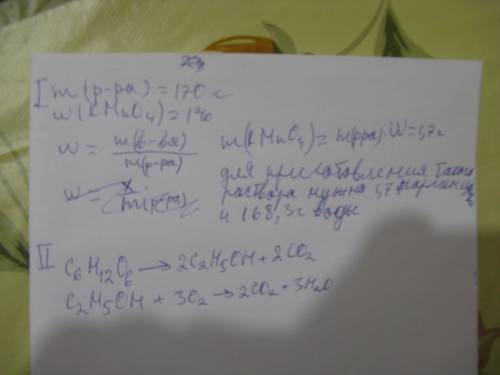 I m(р-ра) = 170 г
w(KMnO4) = 1%
w = m(в-ва) / m(р-ра)
m(KMnO4) = m(р-ра)·W = 1,7 г
для приготовления такого
раствора нужно 1,7 г марганц
и 168,3 г воды
W = x / m(р-ра)
II C6H12O6 → 2C2H5OH + 2CO2
C2H5OH + 3O2 → 2CO2 + 3H2O